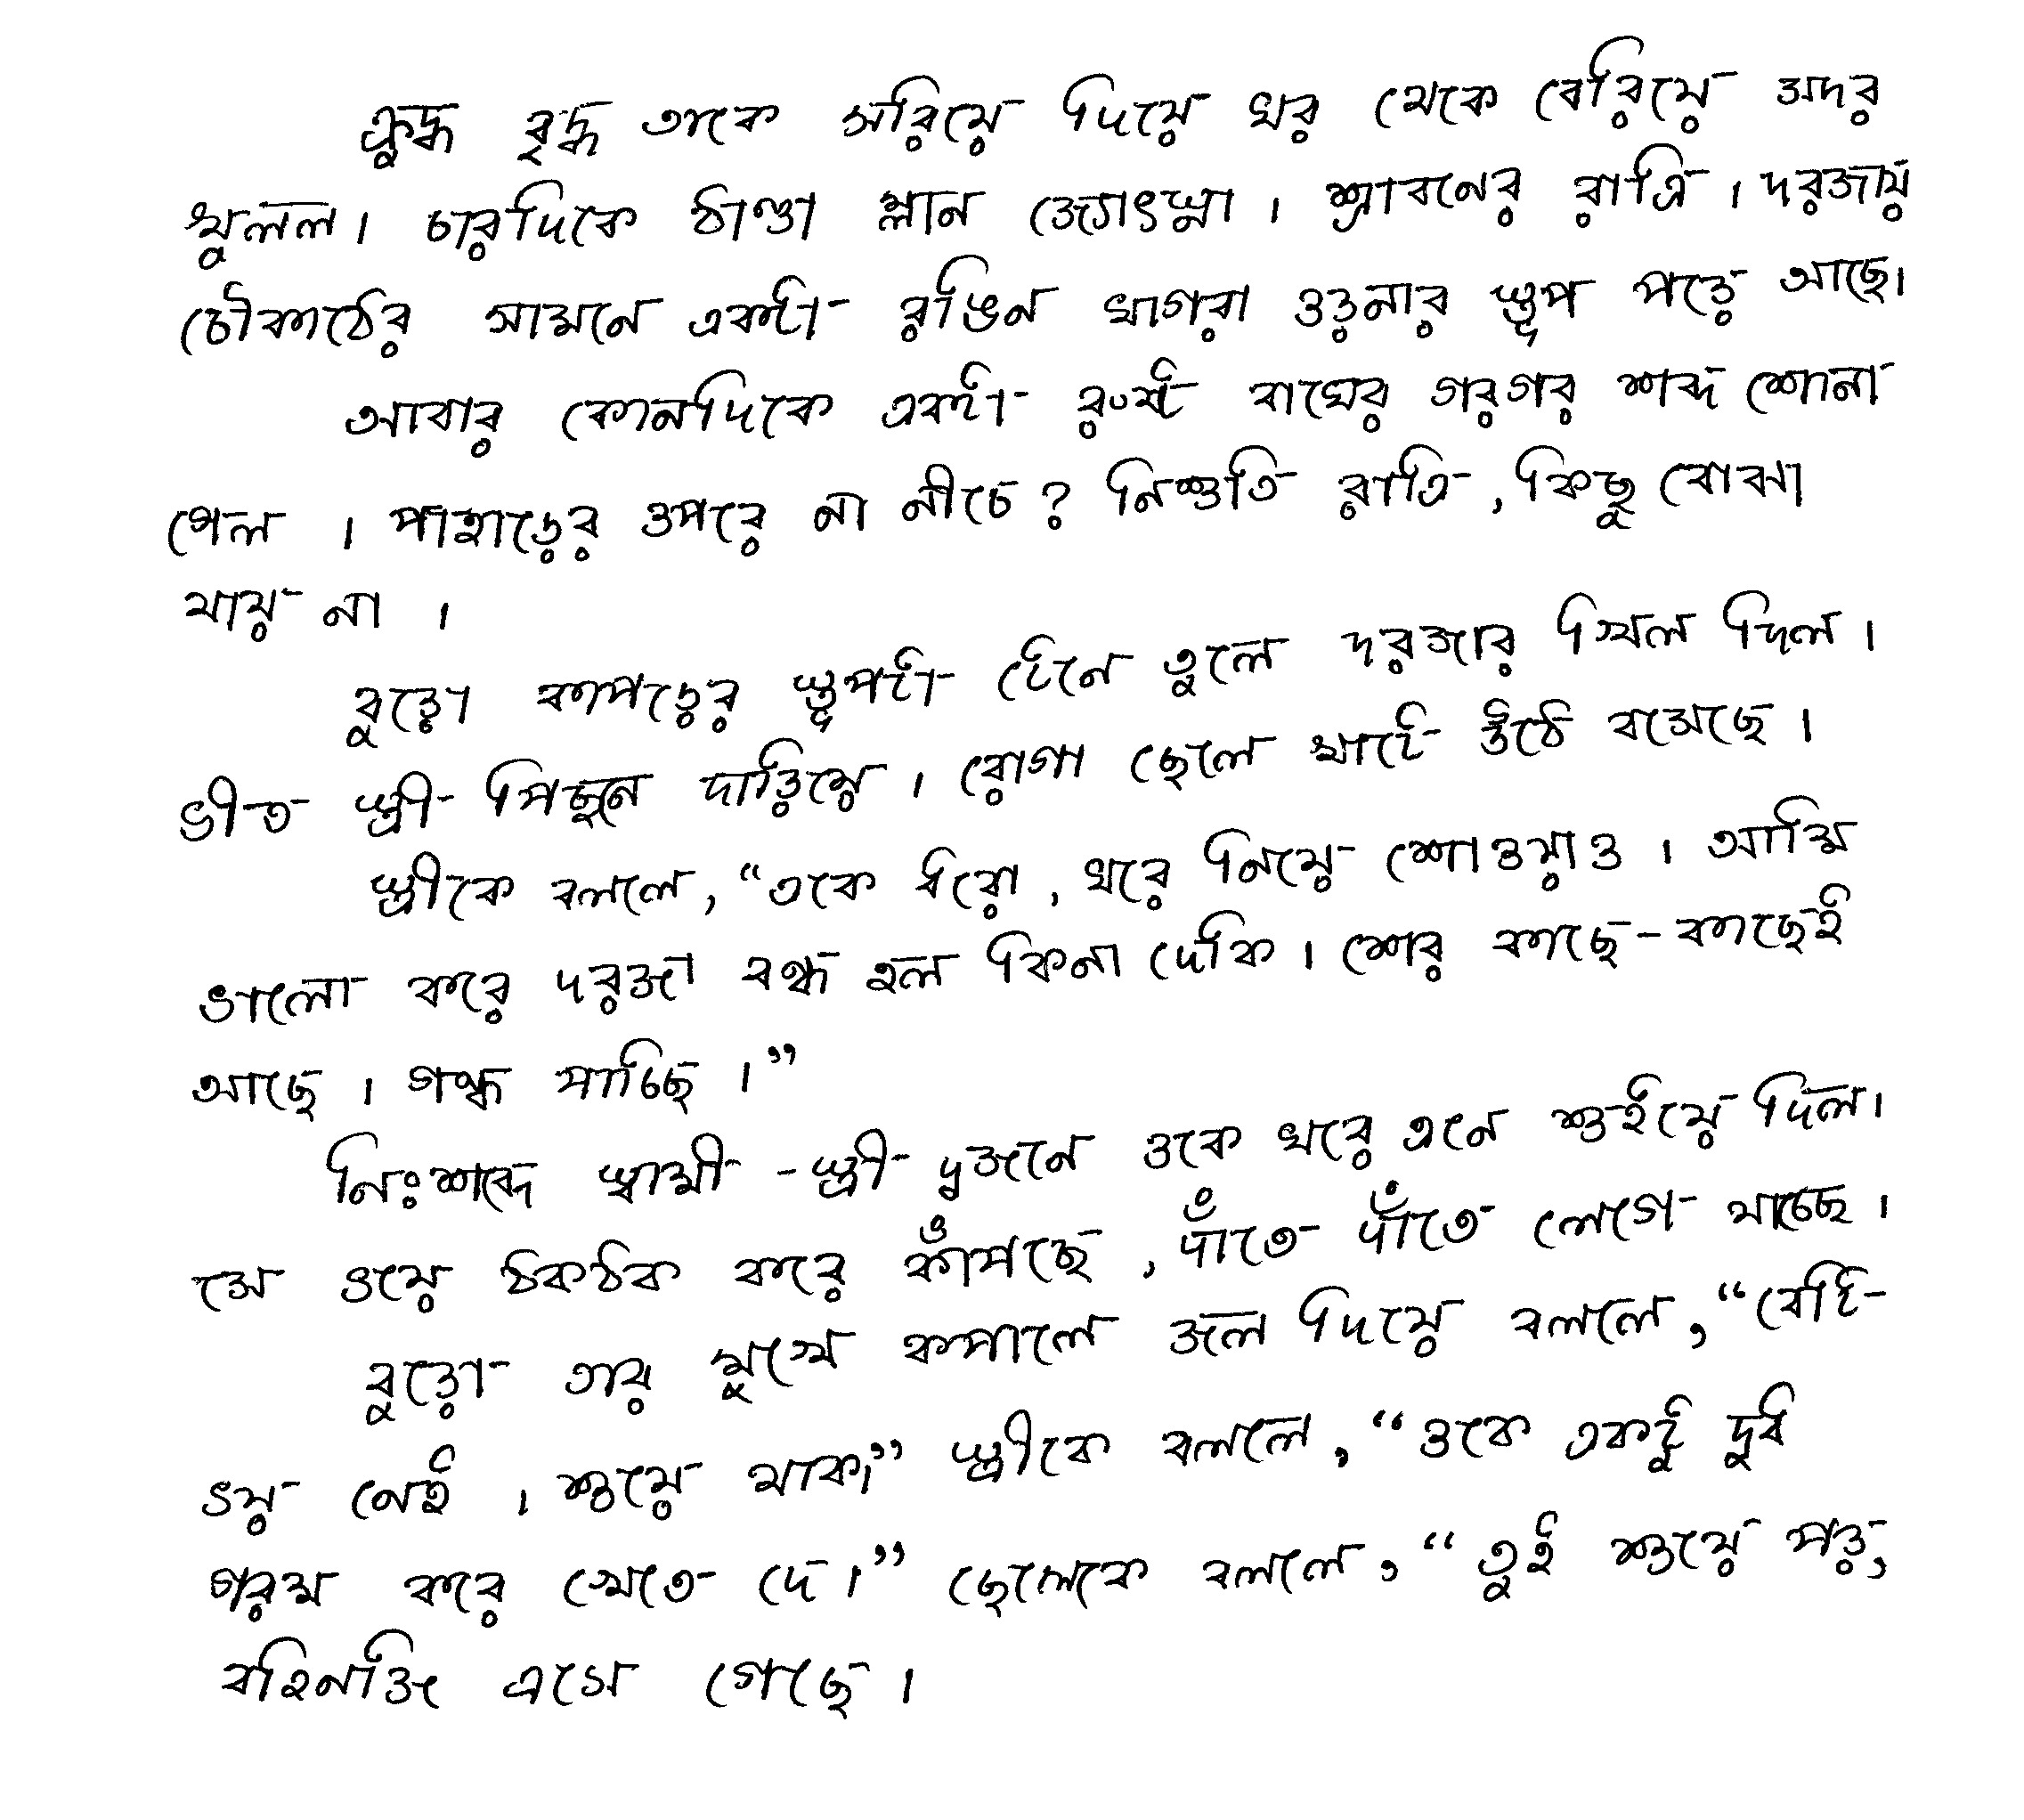 ক্রুদ্ধ বৃদ্ধ তাকে সরিয়ে দিয়ে ঘর থেকে বেরিয়ে সদর
খুলল। চারদিকে ঠাণ্ডা ম্লান জ্যোৎস্না। শ্রাবনের রাত্রি। দরজায়
চৌকাঠের সামনে একটা রঙিন ঘাগরা ওড়নার স্তূপ পড়ে আছে।
আবার কোনদিকে একটা রুষ্ট বাঘের গরগর শব্দ শোনা
গেল। পাহাড়ের ওপরে না নীচে? নিশুতি রাত্রি, কিছু বোঝা
যায় না।
বুড়ো কাপড়ের স্তূপটা টেনে তুলে দরজার খিল দিল।
ভীত স্ত্রী পিছনে দাড়িয়ে। রোগা ছেলে খাটে উঠে বসেছে।
স্ত্রীকে বললে, “তকে ধরো, ঘরে নিয়ে শোওয়াও। আমি
ভালো করে দরজা বন্ধ হল কিনা দেকি। শের কাছে-কাছেই
আছে। গন্ধ পাচ্ছি।”
নিঃশব্দে স্বামী-স্ত্রী দুজনে ওকে ঘরে এনে শুইয়ে দিল।
সে ভয়ে ঠকঠক করে কাঁপছে, দাঁতে দাঁতে লেগে যাচ্ছে।
বুড়ো তার মুখে কপালে জল দিয়ে বললে, “বেটি
ভয় নেই। শুয়ে থাক।” স্ত্রীকে বললে, “ওকে একটু দুধ
গরম করে খেতে দে।” ছেলেকে বললে, “তুই শুয়ে পড়,
বহিনজি এসে গেছে।